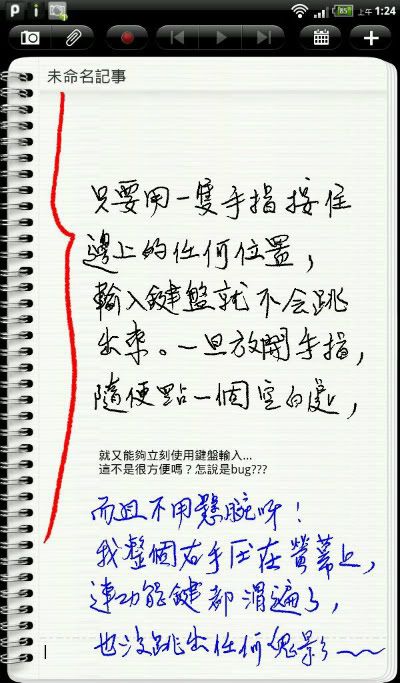 上午 1:24
未命名記事
只要用一隻手指按住
邊上的任何位置，
輸入鍵盤就不会跳
出來。一旦放開手指，
隨便點一個空白處，
就又能夠立刻使用鍵盤輸入...
這不是很方便嗎？怎說是bug???
而且不用懸腕呀！
我整個右手压在螢幕上，
連功能鍵都滑遍了，
也沒跳出任何鬼影～～